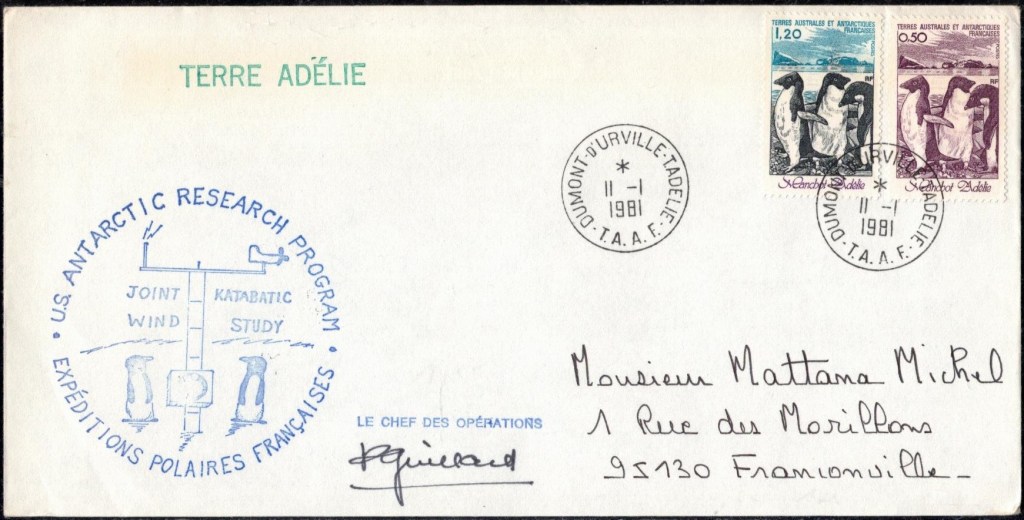 TERRE ADÉLIE
TERRES AUSTRALES ET ANTARCTIQUES
FRANÇAISES
1,20
RF
Manchot Adélie
TERRES AUSTRALES ET ANTARCTIQUES
FRANÇAISES
0.50
RF
Manchot Adélie
DUMONT-D'URVILLE-TADELIE
11 -1
1981
T.A.A.F.
DUMONT-D'URVILLE-TADELIE
11 -1
1981
T.A.A.F.
U.S. ANTARCTIC RESEARCH PROGRAM
JOINT KATABATIC
WIND STUDY
EXPÉDITIONS POLAIRES FRANÇAISES
LE CHEF DES OPÉRATIONS
Monsieur Mattana Michel
1 Rue des Morillons
95130 Franconville